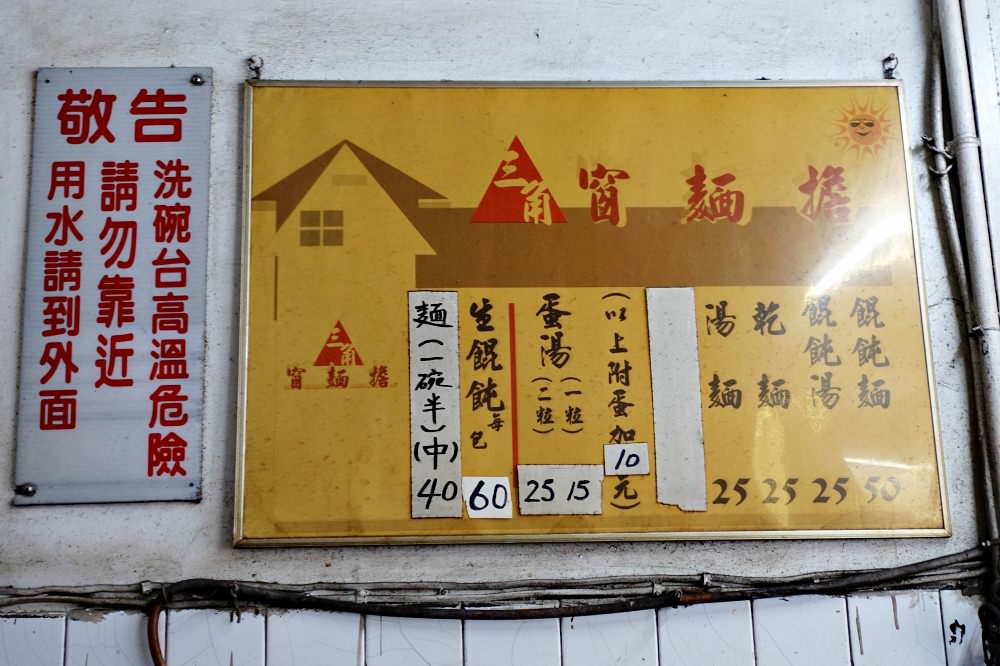 敬告
洗碗台高溫危險
請勿靠近
用水請到外面
三角窗麵擔
餛飩麵 50
餛飩湯 25
乾麵 25
湯麵 25
(以上附蛋加10元)
蛋湯 (一粒) 15
(二粒) 25
生餛飩每包 60
麵(一碗半)(中) 40
三角
窗麵擔